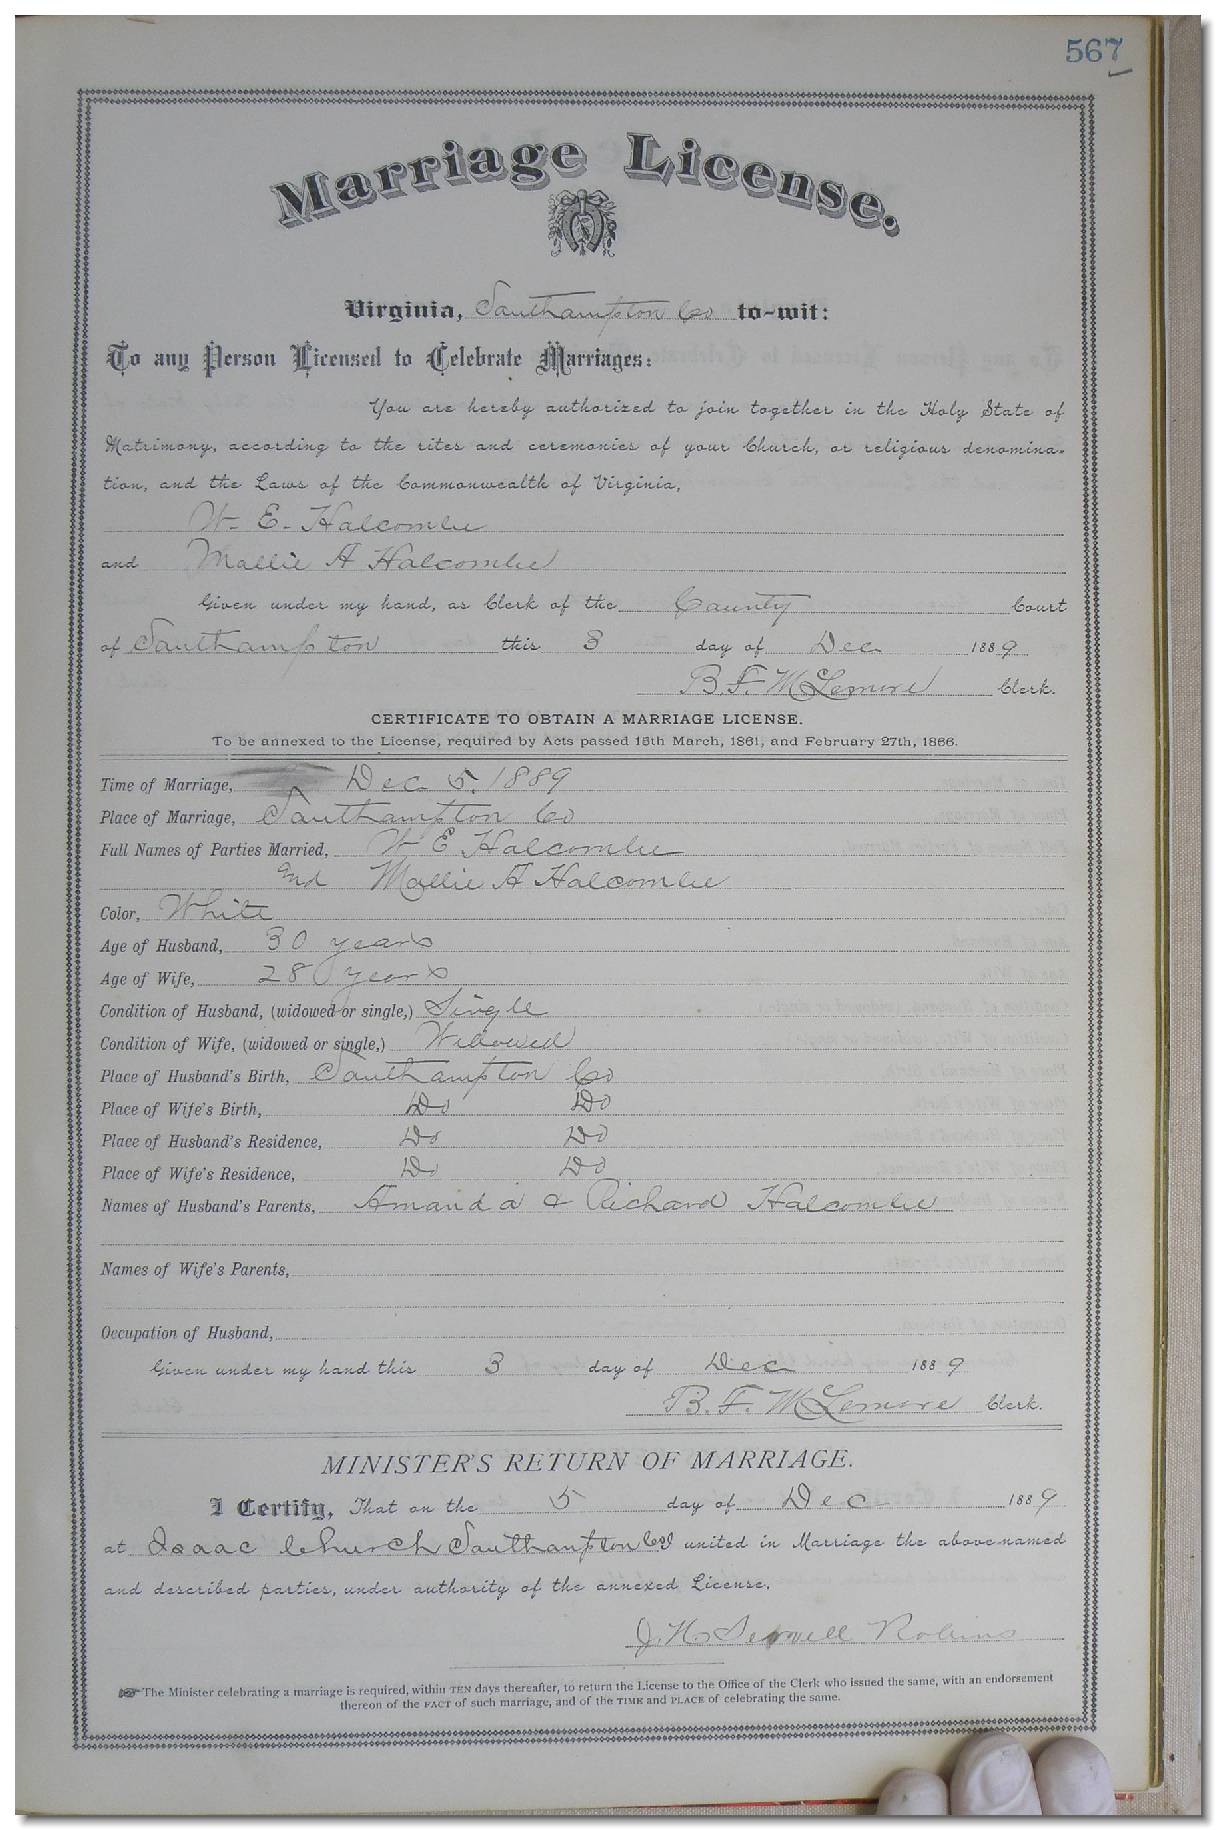 567
Marriage License.
Virginia, Southampton Co to-wit:
To any Person Licensed to Celebrate Marriages:
You are hereby authorized to join together in the Holy State of
Matrimony, according to the rites and ceremonies of your Church, or religious denomina-
tion, and the Laws of the Commonwealth of Virginia,
W. E. Halcombe
and Mallie A Halcombe
Given under my hand, as Clerk of the County Court
of Southampton this 3 day of Dec 1889
B. F. McLemore Clerk.
CERTIFICATE TO OBTAIN A MARRIAGE LICENSE.
To be annexed to the License, required by Acts passed 15th March, 1861, and February 27th, 1866.
Time of Marriage, Dec 5. 1889
Place of Marriage, Southampton Co
Full Names of Parties Married, W E Halcombe
and Mallie A Halcombe
Color, White
Age of Husband, 30 years
Age of Wife, 28 years
Condition of Husband, (widowed or single,) Single
Condition of Wife, (widowed or single,) Widowed
Place of Husband's Birth, Southampton Co
Place of Wife's Birth, Do Do
Place of Husband's Residence, Do Do
Place of Wife's Residence, Do Do
Names of Husband's Parents, Amanda & Richard Halcombe
Names of Wife's Parents,
Occupation of Husband,
Given under my hand this 3 day of Dec 1889
B. F. McLemore Clerk.
MINISTER'S RETURN OF MARRIAGE.
I Certify, That on the 5 day of Dec 1889
at Isaac Church Southampton Co I united in Marriage the above-named
and described parties, under authority of the annexed License.
J. H. Robins
The Minister celebrating a marriage is required, within TEN days thereafter, to return the License to the Office of the Clerk who issued the same, with an endorsement
thereon of the FACT of such marriage, and of the TIME and PLACE of celebrating the same.